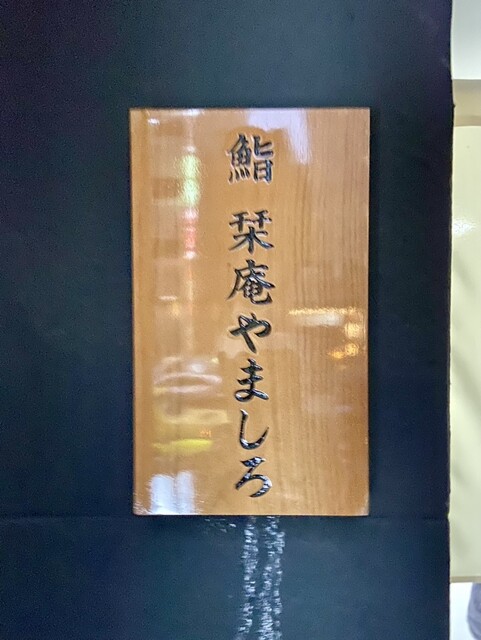 鮨 栞庵やましろ